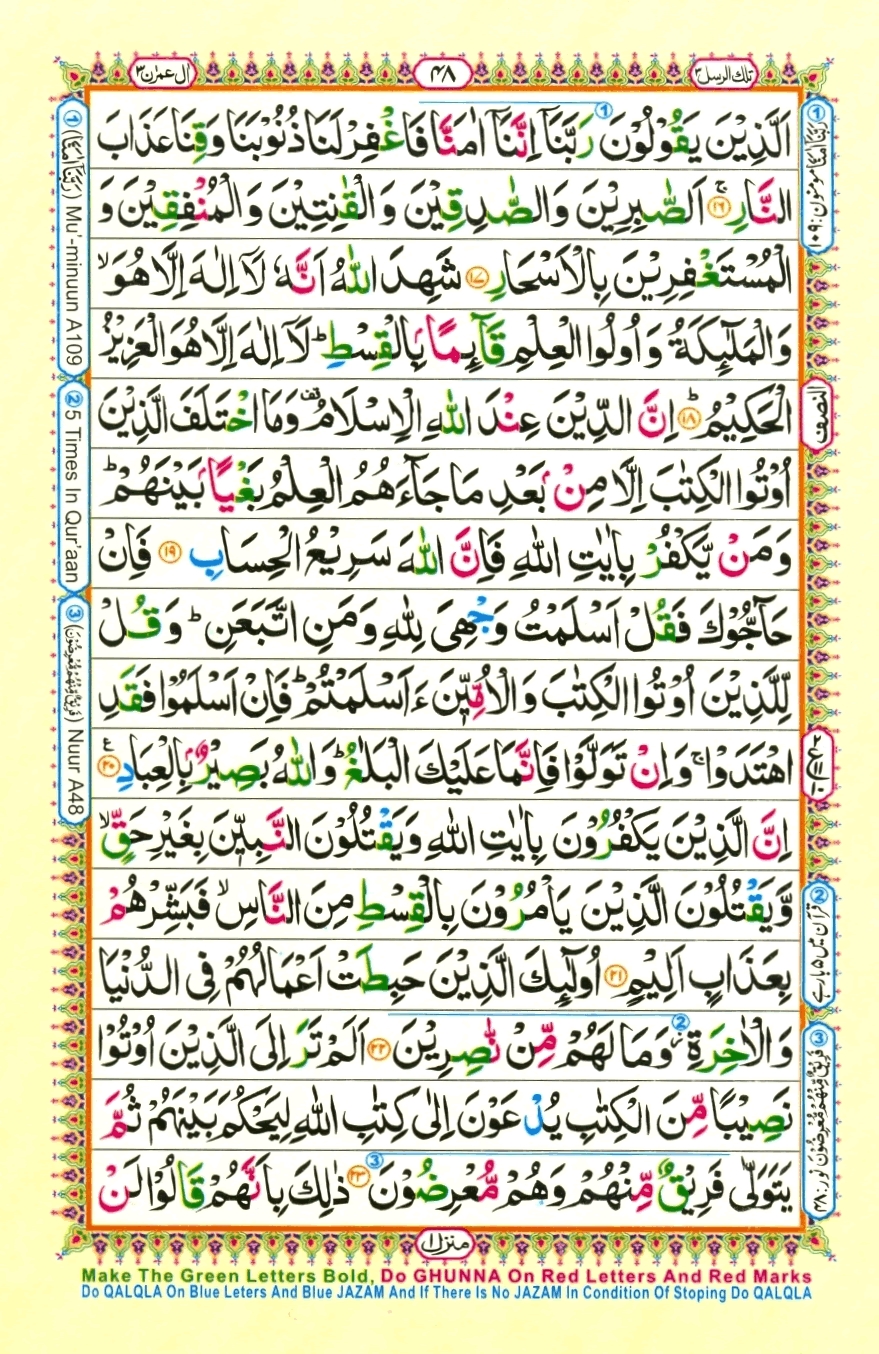 تلك الرسل ٣
٤٨
اٰل عمرٰن ٣
اَلَّذِیْنَ یَقُوْلُوْنَ رَبَّنَاۤ اِنَّنَاۤ اٰمَنَّا فَاغْفِرْ لَنَا ذُنُوْبَنَا وَقِنَا عَذَابَ
النَّارِ ۚ ﴿۱۶﴾ اَلصّٰبِرِیْنَ وَالصّٰدِقِیْنَ وَالْقٰنِتِیْنَ وَالْمُنْفِقِیْنَ وَ
الْمُسْتَغْفِرِیْنَ بِالْاَسْحَارِ ﴿۱۷﴾ شَهِدَ اللّٰهُ اَنَّهٗ لَاۤ اِلٰهَ اِلَّا هُوَ ۙ
وَالْمَلٰٓئِكَةُ وَاُولُوا الْعِلْمِ قَآئِمًۢا بِالْقِسْطِ ؕ لَاۤ اِلٰهَ اِلَّا هُوَ الْعَزِیْزُ
الْحَكِیْمُ ؕ ﴿۱۸﴾ اِنَّ الدِّیْنَ عِنْدَ اللّٰهِ الْاِسْلَامُ ۫ وَمَا اخْتَلَفَ الَّذِیْنَ
اُوْتُوا الْكِتٰبَ اِلَّا مِنْۢ بَعْدِ مَا جَآءَهُمُ الْعِلْمُ بَغْیًۢا بَیْنَهُمْ ؕ
وَمَنْ یَّكْفُرْ بِاٰیٰتِ اللّٰهِ فَاِنَّ اللّٰهَ سَرِیْعُ الْحِسَابِ ﴿۱۹﴾ فَاِنْ
حَآجُّوْكَ فَقُلْ اَسْلَمْتُ وَجْهِیَ لِلّٰهِ وَمَنِ اتَّبَعَنِ ؕ وَقُلْ
لِّلَّذِیْنَ اُوْتُوا الْكِتٰبَ وَالْاُمِّیّٖنَ ءَاَسْلَمْتُمْ ؕ فَاِنْ اَسْلَمُوْا فَقَدِ
اهْتَدَوْا ۚ وَاِنْ تَوَلَّوْا فَاِنَّمَا عَلَیْكَ الْبَلٰغُ ؕ وَاللّٰهُ بَصِیْرٌۢ بِالْعِبَادِ ﴿۲۰﴾ ع
اِنَّ الَّذِیْنَ یَكْفُرُوْنَ بِاٰیٰتِ اللّٰهِ وَیَقْتُلُوْنَ النَّبِیّٖنَ بِغَیْرِ حَقٍّ ۙ
وَّیَقْتُلُوْنَ الَّذِیْنَ یَاْمُرُوْنَ بِالْقِسْطِ مِنَ النَّاسِ ۙ فَبَشِّرْهُمْ
بِعَذَابٍ اَلِیْمٍ ﴿۲۱﴾ اُولٰٓئِكَ الَّذِیْنَ حَبِطَتْ اَعْمَالُهُمْ فِی الدُّنْیَا
وَالْاٰخِرَةِ ؗ وَمَا لَهُمْ مِّنْ نّٰصِرِیْنَ ﴿۲۲﴾ اَلَمْ تَرَ اِلَی الَّذِیْنَ اُوْتُوْا
نَصِیْبًا مِّنَ الْكِتٰبِ یُدْعَوْنَ اِلٰی كِتٰبِ اللّٰهِ لِیَحْكُمَ بَیْنَهُمْ ثُمَّ
یَتَوَلّٰی فَرِیْقٌ مِّنْهُمْ وَهُمْ مُّعْرِضُوْنَ ﴿۲۳﴾ ذٰلِكَ بِاَنَّهُمْ قَالُوْا لَنْ
① رَبَّنَاۤ اٰمَنَّا مومنون: ١٠٩
النصف
② قرآن میں ۵ بار ہے
③ فَرِیْقٌ مِّنْهُمْ مُّعْرِضُوْنَ نور: ٤٨
① (رَبَّنَاۤ اٰمَنَّا) Mu'-minuun A109
② 5 Times In Qur'aan
③ (فَرِیْقٌ مِّنْهُمْ مُّعْرِضُوْنَ) Nuur A48
منزل ١
Make The Green Letters Bold, Do GHUNNA On Red Letters And Red Marks
Do QALQLA On Blue Leters And Blue JAZAM And If There Is No JAZAM In Condition Of Stoping Do QALQLA